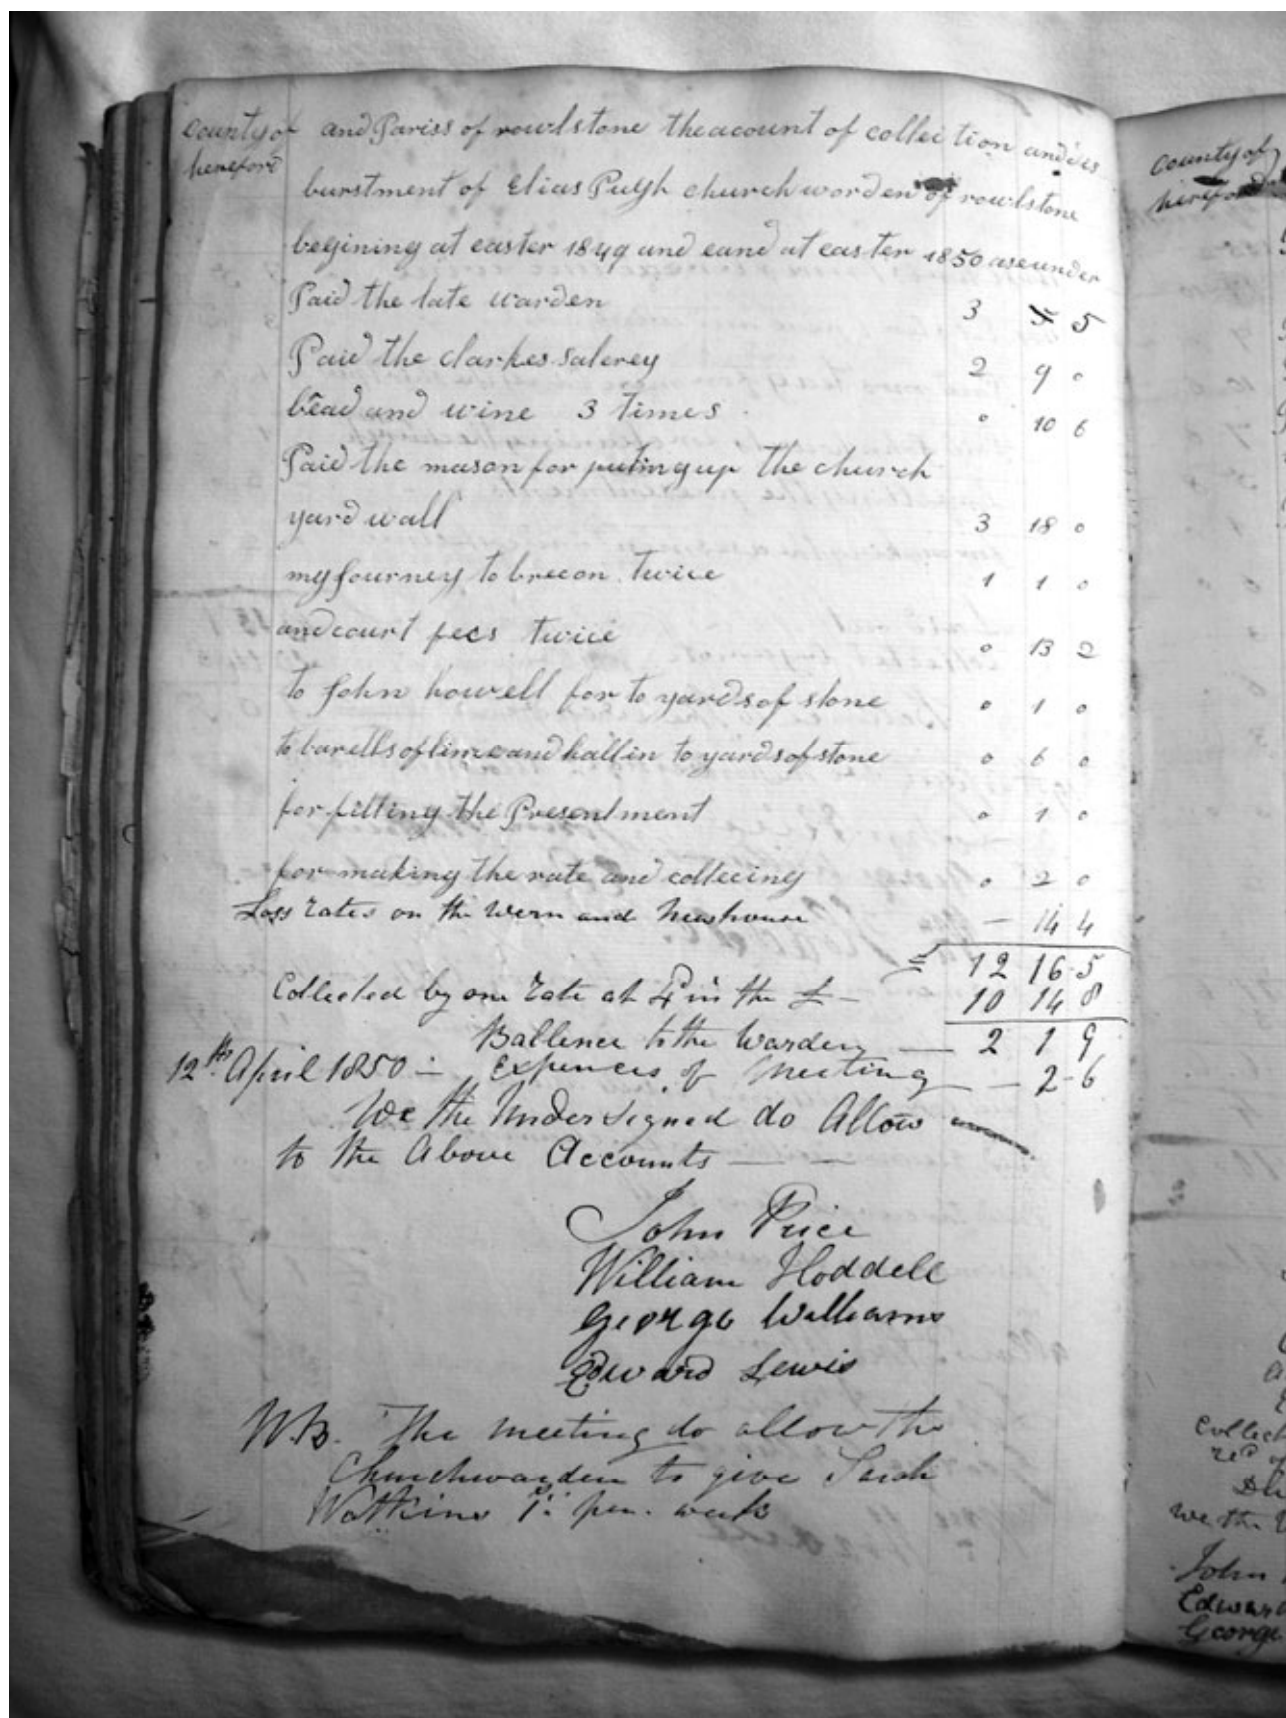 county of and Pariss of rowlstone the acount of collection and dis
hereford
burstment of Elias Pugh church worden of rowlstone
begining at easter 1849 and eand at easter 1850 ase under
Paid the late warden 3 5
Paid the clarkes salerey 2 9 0
bead and wine 3 times 0 10 6
Paid the mason for puting up the church
yard wall 3 18 0
my Journey to brecon twice 1 1 0
and court fees twice 0 13 2
to John howell for to yards of stone 0 1 0
to barells of lime and hallin to yards of stone 0 6 0
for filling the Presentment 0 1 0
for making the rate and collecing 0 2 0
Loss rates on the Wern and Newhouse – 14 4
12 16 5
Collected by one rate at 4d in the £ – 10 14 8
Ballence to the Warden — 2 1 9
12th April 1850 – Expences of Meeting – – 2–6
We the Undersigned do Allow
to the Above Accounts — —
John Price
William Hoddell
George Williams
Edward Lewis
N.B. The meeting do allow the
Churchwarden to give Sarah
Watkins per week
county of
hereford
Collect
we the
John
Edward
George